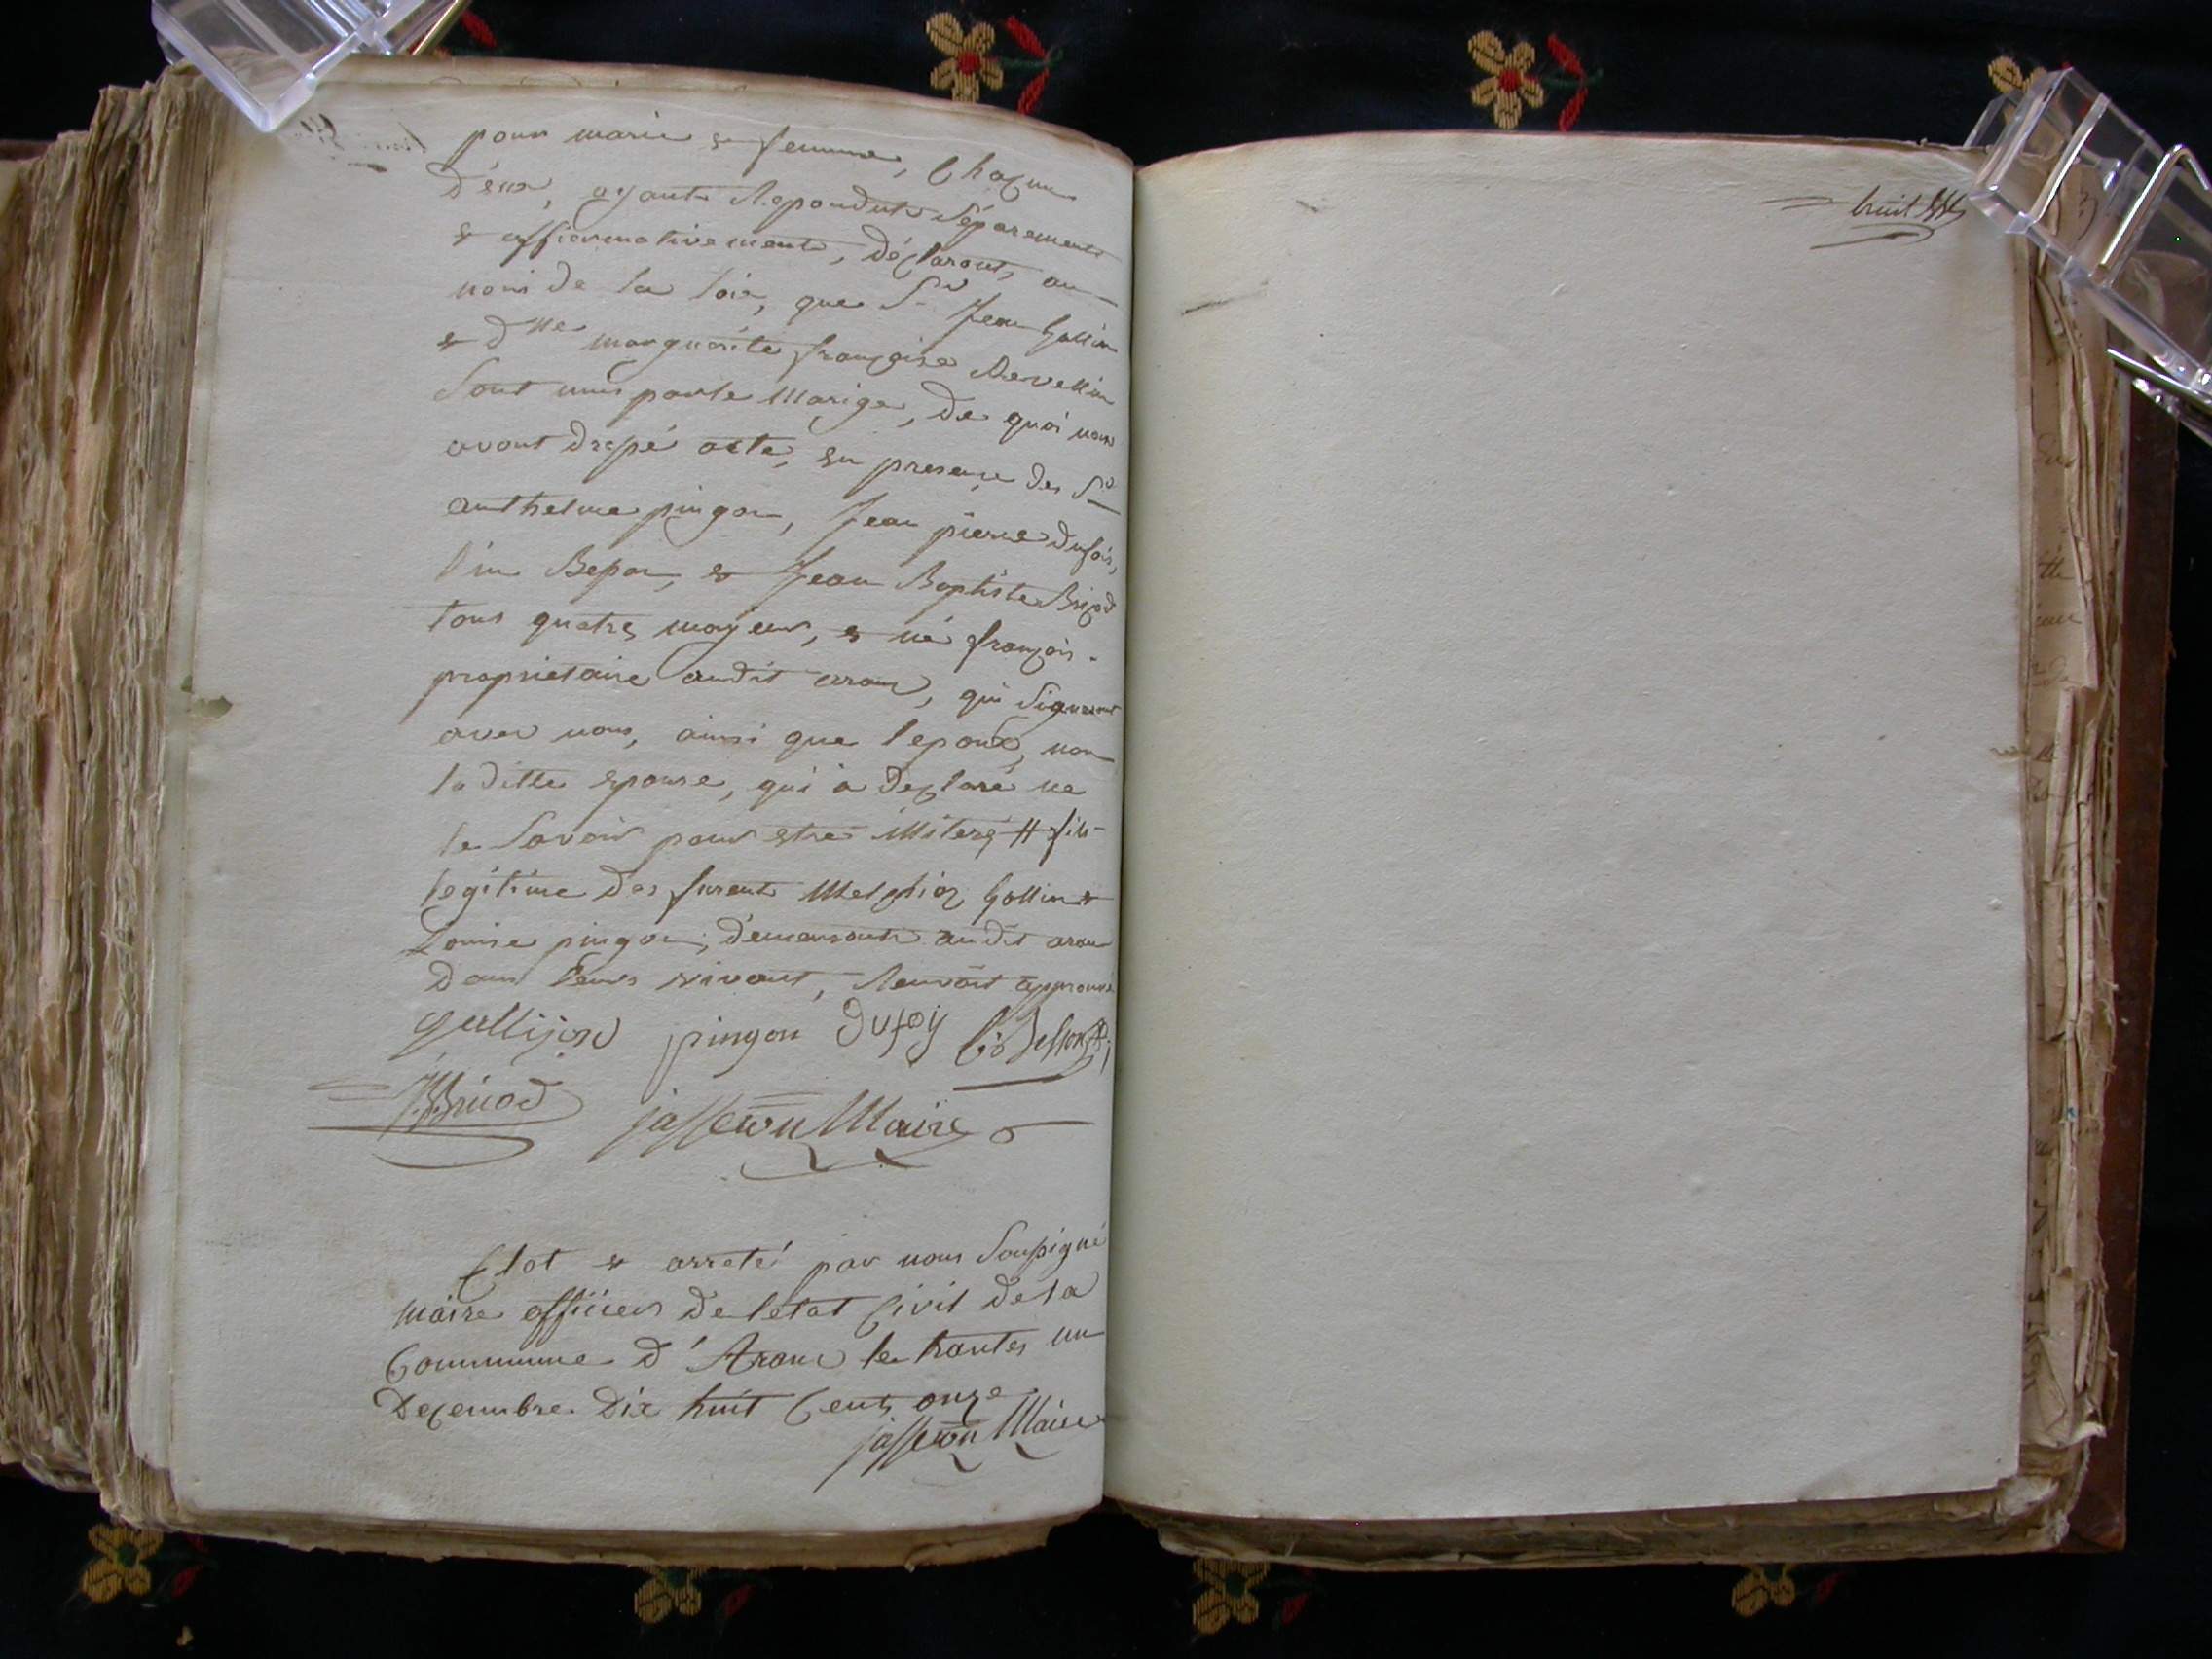 pour marie & femme, Chaqun
d'eux, ayant Repondut Séparement
& affiermativement, déclaront, au
nom de la loix, que Sr Jean Gallin
& dlle marguerite françoise Revellin
Sont unis par le Marige, de quoi nous
avont dressé acte, en presence des Srs
anthelme pingon, Jean pierre dufois,
Besson, & Jean Baptiste Bricod
tous quatres majeur, & né françois.
proprietaire audit aranc, qui Signeront
avec nous, ainsi que l'epoux, non
la ditte epouse, qui a declaré ne
le Savoir pour estre illiteré # fils
legitime des furent Melchior Gallin &
Louise pingon, demeurants audit aranc
dans leurs vivant, Renvoit approuvé
pingon dufoy
J.B.Bricod jasseron Maire
Clot & arreté par nous Soussigné
maire officier de l'etat Civil de la
Commune d'Aranc le trantes un
Decembre dix huit Cents onze
jasseron Maire
huit